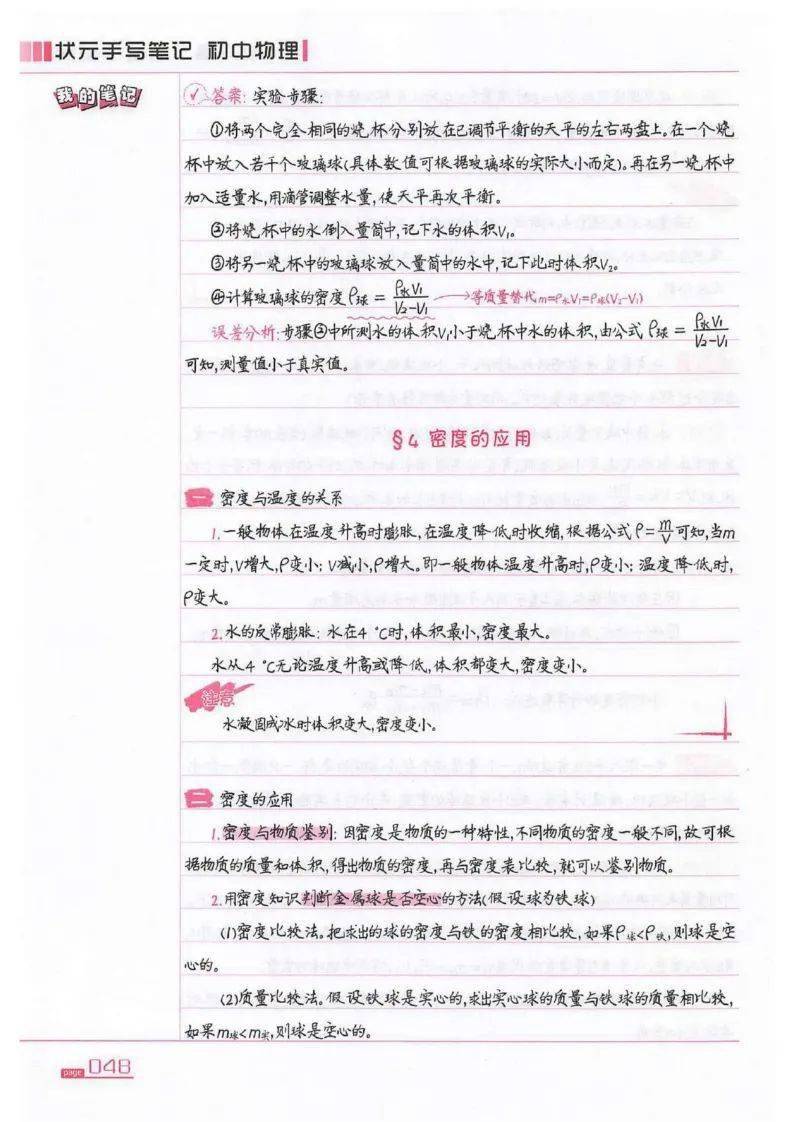 状元手写笔记 初中物理
我的笔记
答案:实验步骤:
①将两个完全相同的烧杯分别放在已调节平衡的天平的左右两盘上。在一个烧
杯中放入若干个玻璃球(具体数值可根据玻璃球的实际大小而定)。再在另一烧杯中
加入适量水,用滴管调整水量,使天平再次平衡。
②将烧杯中的水倒入量筒中,记下水的体积V₁。
③将另一烧杯中的玻璃球放入量筒中的水中,记下此时体积V₂。
④计算玻璃球的密度ρ球 = ρ水V₁/(V₂-V₁) →等质量替代m=ρ水V₁=ρ球(V₂-V₁)
误差分析:步骤②中所测水的体积V₁小于烧杯中水的体积,由公式ρ球 = ρ水V₁/(V₂-V₁)
可知,测量值小于真实值。
§4 密度的应用
一 密度与温度的关系
1.一般物体在温度升高时膨胀,在温度降低时收缩,根据公式ρ=m/V可知,当m
一定时,V增大,ρ变小;V减小,ρ增大。即一般物体温度升高时,ρ变小;温度降低时,
ρ变大。
2.水的反常膨胀:水在4 ℃时,体积最小,密度最大。
水从4 ℃无论温度升高或降低,体积都变大,密度变小。
注意
水凝固成冰时体积变大,密度变小。
二 密度的应用
1.密度与物质鉴别:因密度是物质的一种特性,不同物质的密度一般不同,故可根
据物质的质量和体积,得出物质的密度,再与密度表比较,就可以鉴别物质。
2.用密度知识判断金属球是否空心的方法(假设球为铁球)
(1)密度比较法。把求出的球的密度与铁的密度相比较,如果ρ球<ρ铁,则球是空
心的。
(2)质量比较法。假设铁球是实心的,求出实心球的质量与铁球的质量相比较,
如果m球<m实,则球是空心的。
page 048